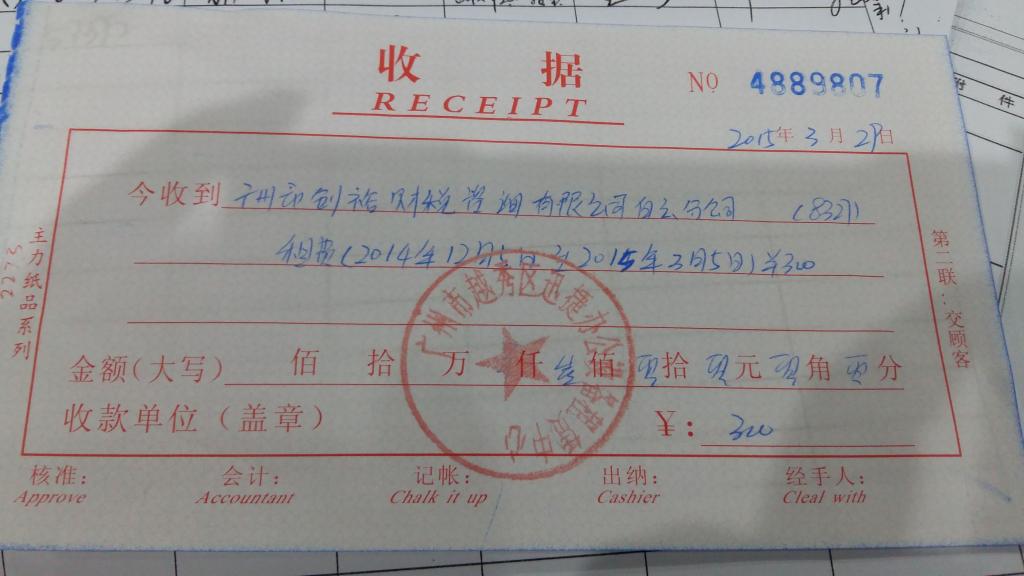 收 据
RECEIPT
NO 4889807
2015年 3月 29日
今收到 广州市创裕财税咨询有限公司白云分公司 (832)
租费(2014年12月5日至2015年3月5日)¥300
金额(大写) 佰 拾 万 仟 叁佰 零拾 零元 零角 零分
收款单位(盖章) ¥: 300
广州市越秀区迅捷办公设备租赁中心
核准: 会计: 记帐: 出纳: 经手人:
Approve Accountant Chalk it up Cashier Cleal with
主力纸品系列
2273
第二联:交顾客
附 件